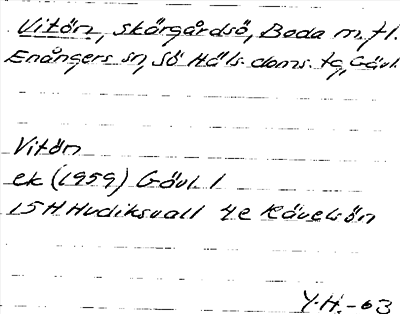 Vitön, skärgårdsö, Boda m.fl.
Enångers sn, Sö Häls. doms. tg, Gävl.
Vitön
ek (1959) Gävl. 1
15H Hudiksvall 4e Rävelsön
Y.H.-63